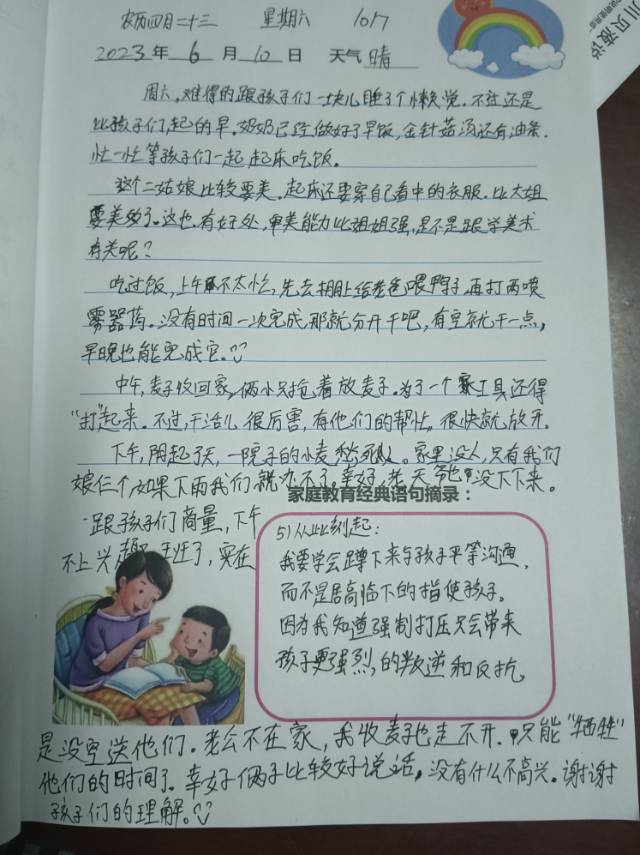 农历四月二十三 星期六 107
2023年 6 月 10 日 天气 晴
周六,难得的跟孩子们一块儿睡了个懒觉。不过还是
比孩子们起的早。奶奶已经做好了早饭,金针菇汤还有油条.
忙一忙等孩子们一起起床吃饭。
这个二姑娘比较要美。起床还要穿自己看中的衣服。比大姐
要美多了。这也有好处,审美能力比姐姐强,是不是跟学美术
有关呢?
吃过饭,上午不太忙,先去棚上给爸爸喂鸭子,再打两喷
雾器药。没有时间一次完成,那就分开干吧,有空就干一点,
早晚也能完成它。
中午,麦子收回家,俩小只抢着放麦子。为了一个工具还得
“打”起来。不过,干活儿很厉害,有他们的帮忙,很快就放开。
下午,阴起了天,一院子的小麦愁死人。家里没人,只有我们
娘仨个,如果下雨我们就办不了。幸好,老天爷也没下下来。
家庭教育经典语句摘录:
跟孩子们商量,下午
不上兴趣班了,实在
5)从此刻起:
我要学会蹲下来与孩子平等沟通,
而不是居高临下的指使孩子。
因为我知道强制打压只会带来
孩子更强烈的叛逆和反抗。
是没空送他们。老公不在家,我收麦子也走不开.只能“牺牲”
他们的时间了。幸好俩子比较好说话,没有什么不高兴。谢谢
孩子们的理解。